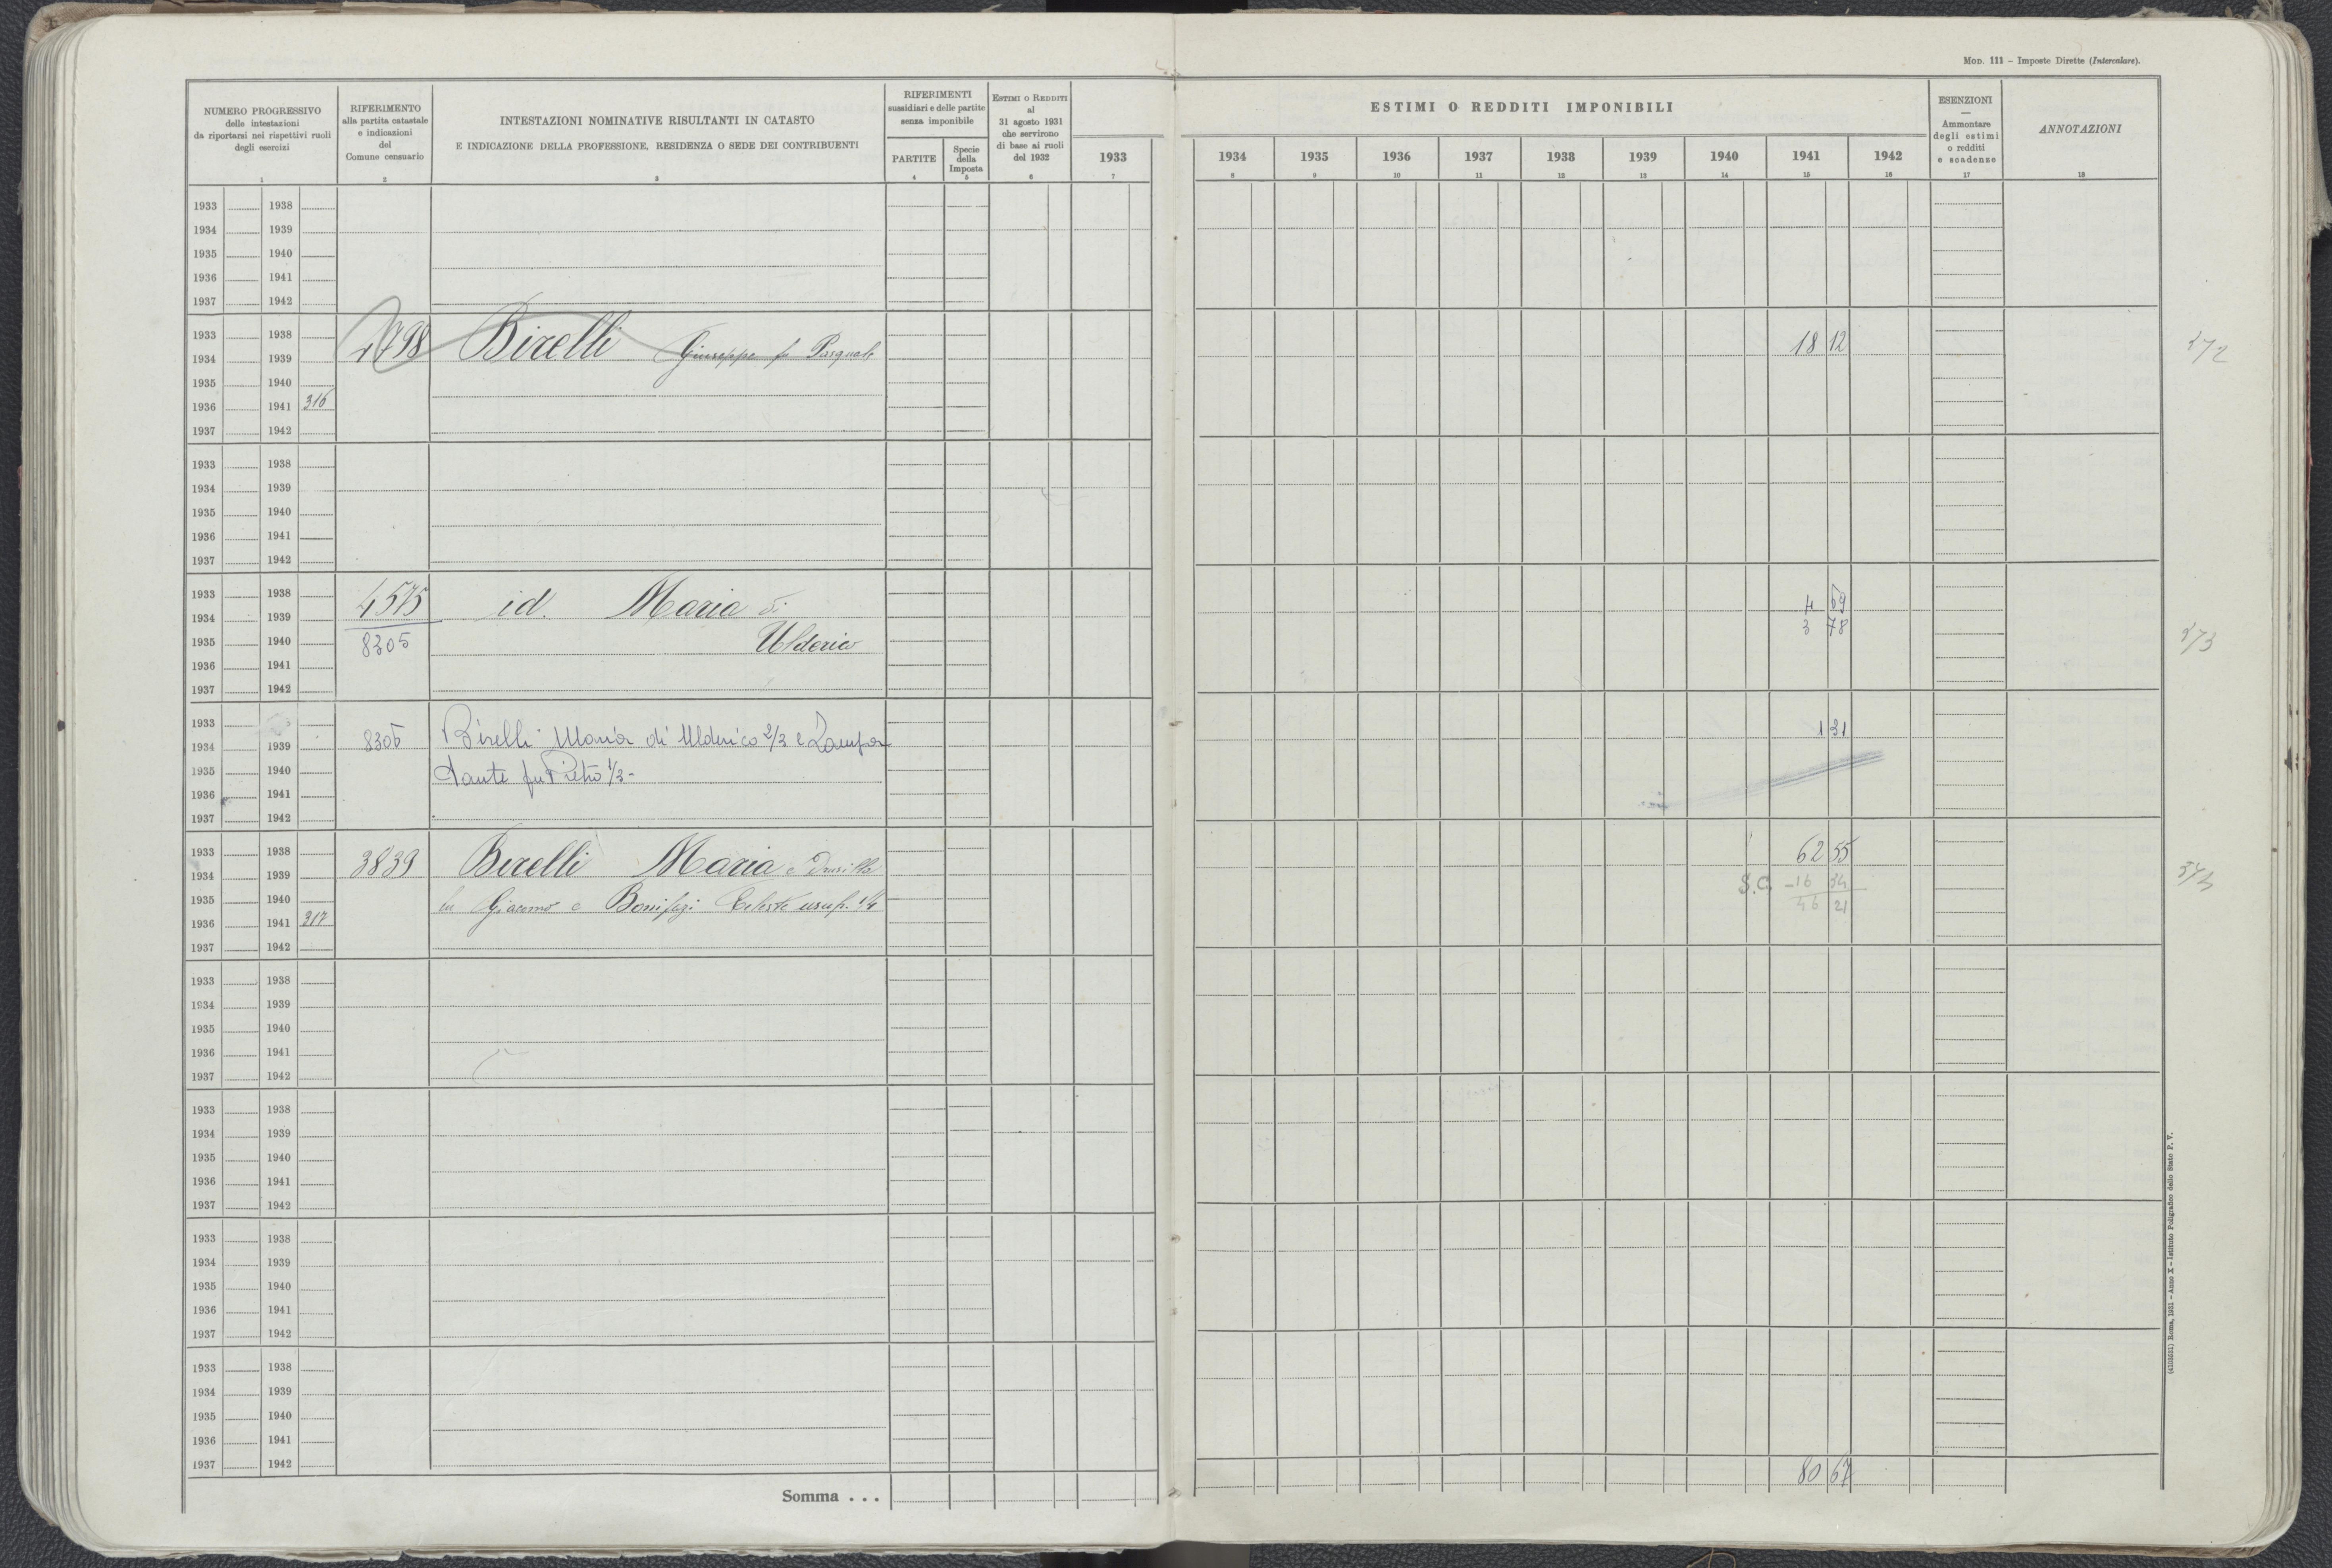 MOD. 111 – Imposte Dirette (Intercalare).
NUMERO PROGRESSIVO
delle intestazioni
da riportarsi nei rispettivi ruoli
degli esercizi
1
RIFERIMENTO
alla partita catastale
e indicazioni
del
Comune censuario
2
INTESTAZIONI NOMINATIVE RISULTANTI IN CATASTO
E INDICAZIONE DELLA PROFESSIONE, RESIDENZA O SEDE DEI CONTRIBUENTI
3
RIFERIMENTI
sussidiari e delle partite
senza imponibile
PARTITE
4
Specie
della
Imposta
5
ESTIMI O REDDITI
al
31 agosto 1931
che servirono
di base ai ruoli
del 1932
6
ESTIMI O REDDITI IMPONIBILI
1933 1934 1935 1936 1937 1938 1939 1940 1941 1942
7 8 9 10 11 12 13 14 15 16
ESENZIONI
—
Ammontare
degli estimi
o redditi
e scadenze
17
ANNOTAZIONI
18
1933 1938
1934 1939
1935 1940
1936 1941
1937 1942
1933 1938
Birelli Giuseppe fu Pasquale 18 12
1934 1939
1935 1940
1936 1941 316
1937 1942
1933 1938
1934 1939
1935 1940
1936 1941
1937 1942
1933 1938
4575 id. Maria di 4 69
1934 1939
Ulderico 3 78
1935 1940 8305
1936 1941
1937 1942
1933
8306 Birelli Maria di Ulderico 2/3 e Zampa 1 31
1934 1939
Dante fu Pietro 1/3 -
1935 1940
1936 1941
1937 1942
1933 1938
3839 Birelli Maria e Drusilla 62 55
1934 1939
S.C. -16 34
1935 1940
fu Giacomo e Bonifazi Celeste usuf. 1/4 46 21
1936 1941 317
1937 1942
1933 1938
1934 1939
1935 1940
1936 1941
1937 1942
1933 1938
1934 1939
1935 1940
1936 1941
1937 1942
1933 1938
1934 1939
1935 1940
1936 1941
1937 1942
1933 1938
1934 1939
1935 1940
1936 1941
1937 1942
Somma . . . 80 67
(4103651) Roma, 1931 – Anno X – Istituto Poligrafico dello Stato P. V.